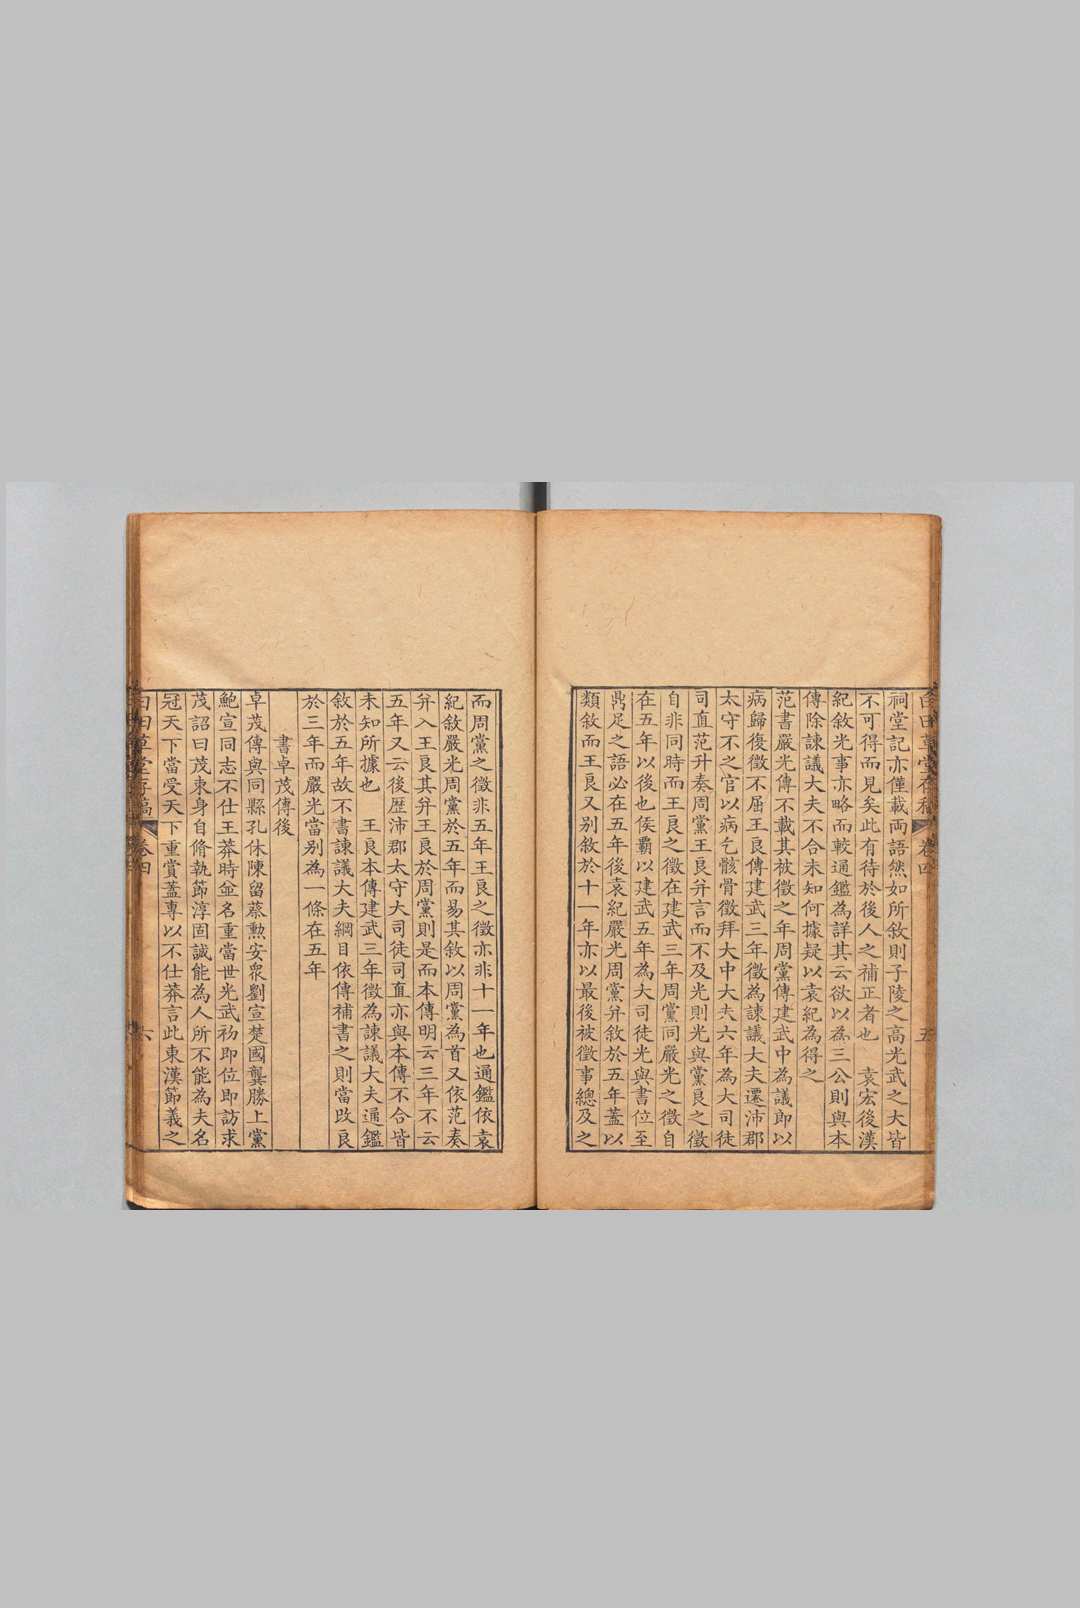 白田草堂存稿 卷四 五
祠堂記亦僅載兩語然如所敘則子陵之高光武之大皆
不可得而見矣此有待於後人之補正者也 袁宏後漢
紀敘光事亦略而較通鑑為詳其云欲以為三公則與本
傳除諫議大夫不合未知何據疑以袁紀為得之
范書嚴光傳不載其被徵之年周黨傳建武中為議郎以
病歸復徵不屈王良傳建武三年徵為諫議大夫遷沛郡
太守不之官以病乞骸骨徵拜大中大夫六年為大司徒
司直范升奏周黨王良并言而不及光則光與黨良之徵
自非同時而王良之徵在建武三年周黨同嚴光之徵自
在五年以後也侯霸以建武五年為大司徒光與書位至
鼎足之語必在五年後袁紀嚴光周黨并敘於五年蓋以
類敘而王良又別敘於十一年亦以最後被徵事總及之
而周黨之徵非五年王良之徵亦非十一年也通鑑依袁
紀敘嚴光周黨於五年而易其敘以周黨為首又依范奏
并入王良其并王良於周黨則是而本傳明云三年不云
五年又云後歷沛郡太守大司徒司直亦與本傳不合皆
未知所據也 王良本傳建武三年徵為諫議大夫通鑑
敘於五年故不書諫議大夫綱目依傳補書之則當改良
於三年而嚴光當別為一條在五年
書卓茂傳後
卓茂傳與同縣孔休陳留蔡勳安眾劉宣楚國龔勝上黨
鮑宣同志不仕王莽時並名重當世光武初即位即訪求
茂詔曰茂束身自脩執節淳固誠能為人所不能為夫名
冠天下當受天下重賞蓋專以不仕莽言此東漢節義之
白田草堂存稿 卷四 六